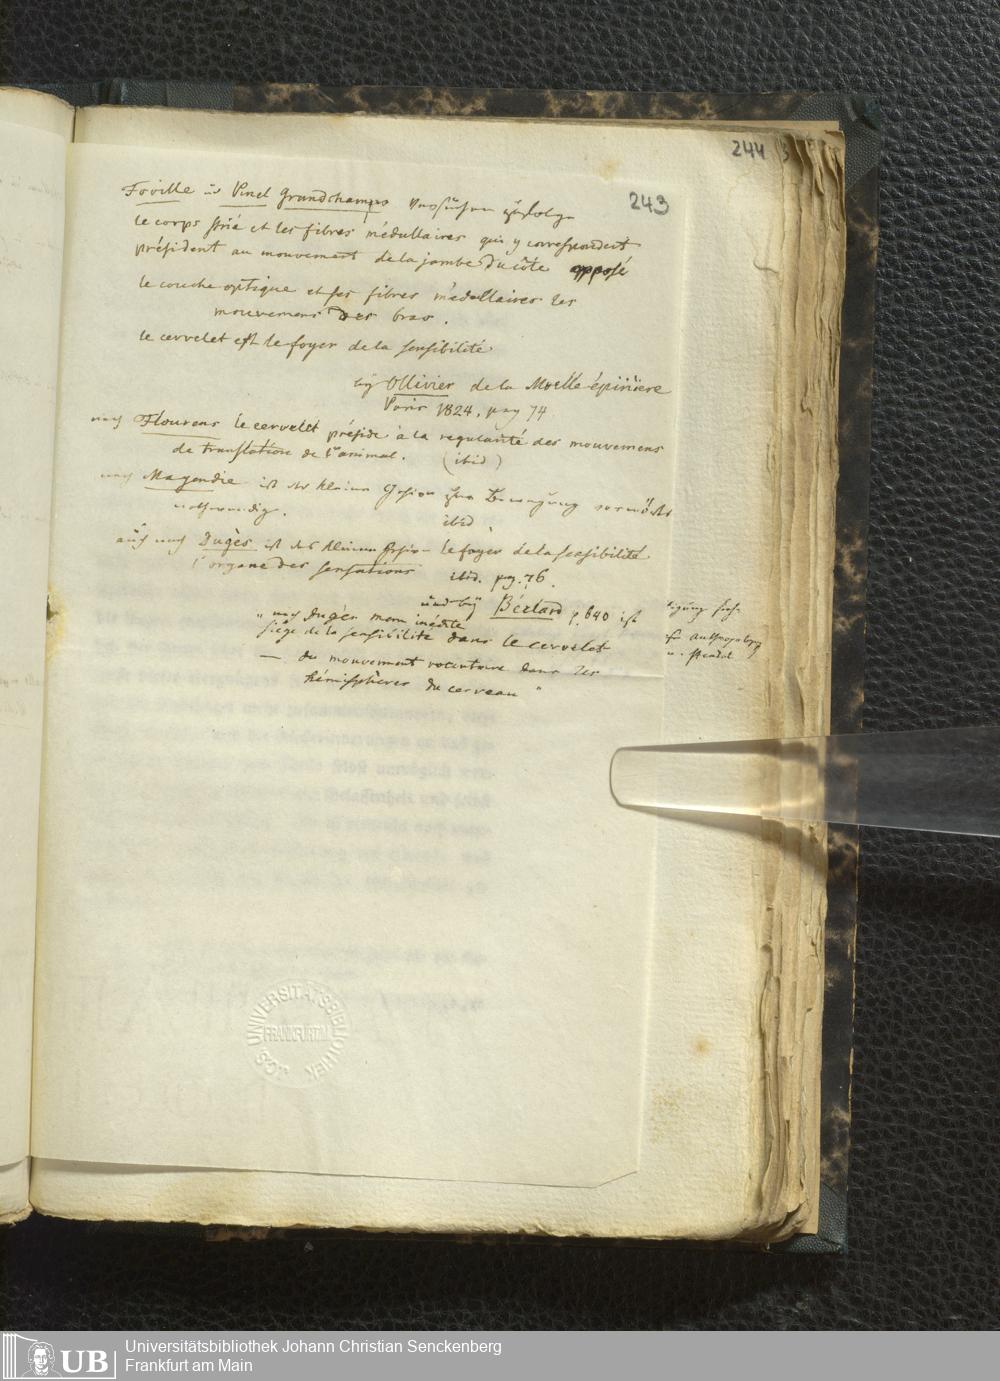 244
243
Foville u Pinel Grandchamps
le corps strié et les fibres médullaires qui y correspondent
président au mouvement de la jambe du côté opposé
le couche optique et ses fibres médullaires les
mouvemens des bras.
le cervelet est le foyer de la sensibilité
Ollivier de la Moelle épinière
Paris 1824, pag 74.
nach Flourens le cervelet préside à la regularité des mouvemens
de translation de l'animal. (ibid)
nach Magendie ist das kleine Gehirn zur Bewegung vorwärts
nothwendig. ibid.
auch nach Dugès ist das kleine Gehirn le foyer de la sensibilité
l'organe des sensations ibid. pag. 76.
und bey Béclard p. 640 ist
" nach Dugès mem inédite
siége de la sensibilité dans le cervelet
— du mouvement volontaire dans les
hémisphères du cerveau "
UNIVERSITÄTSBIBLIOTHEK
FRANKFURT/M
J.C.S.
UB
Universitätsbibliothek Johann Christian Senckenberg
Frankfurt am Main